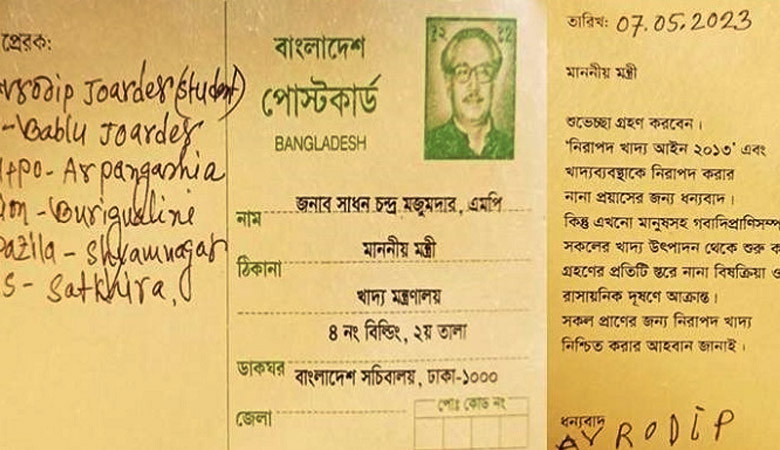 প্রেরক:
Joarder (Student)
Bablu Joarder
Arpangashia
Burigoalini
Shyamnagar
Satkhira,
বাংলাদেশ
পোস্টকার্ড
BANGLADESH
নাম জনাব সাধন চন্দ্র মজুমদার, এমপি
ঠিকানা মাননীয় মন্ত্রী
খাদ্য মন্ত্রণালয়
৪ নং বিল্ডিং, ২য় তালা
ডাকঘর বাংলাদেশ সচিবালয়, ঢাকা-১০০০
জেলা
পোঃ কোড নং
তারিখ: 07.05.2023
মাননীয় মন্ত্রী
শুভেচ্ছা গ্রহণ করবেন।
'নিরাপদ খাদ্য আইন ২০১৩' এবং
খাদ্যব্যবস্থাকে নিরাপদ করার
নানা প্রয়াসের জন্য ধন্যবাদ।
কিন্তু এখনো মানুষসহ গবাদিপ্রাণিসম্প
সকলের খাদ্য উৎপাদন থেকে শুরু ক
গ্রহণের প্রতিটি স্তরে নানা বিষক্রিয়া ও
রাসায়নিক দূষণে আক্রান্ত।
সকল প্রাণের জন্য নিরাপদ খাদ্য
নিশ্চিত করার আহবান জানাই।
ধন্যবাদ
AVRODIP